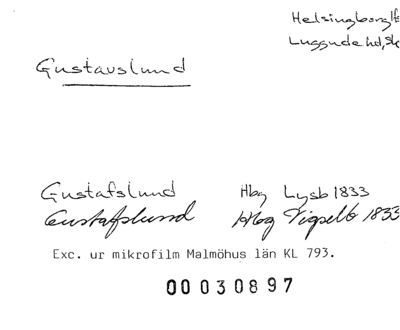 Helsingborg lf
Luggude hd, Sk
Gustavslund
Gustafslund Hbg Lysb 1833
Gustafslund Hbg Vigselb 1833
Exc. ur mikrofilm Malmöhus län KL 793.
00030897